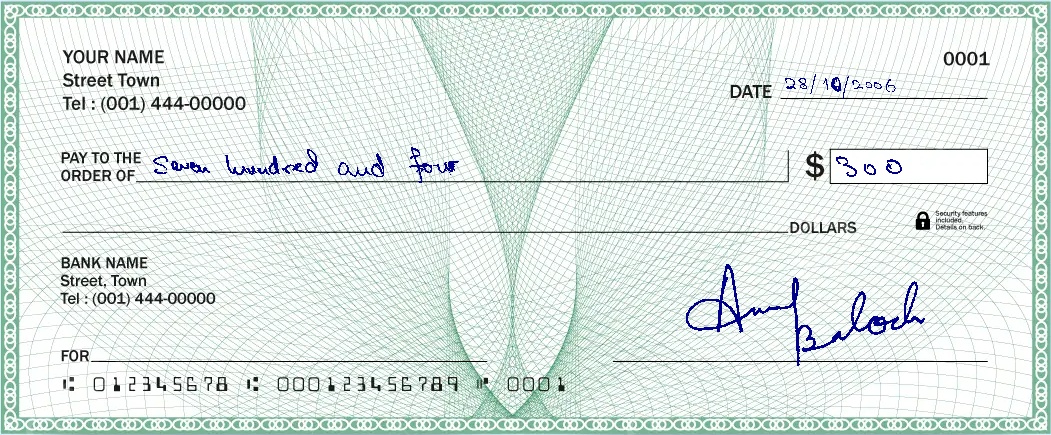 YOUR NAME
0001
Street Town
Tel : (001) 444-00000
DATE 28/10/2006
PAY TO THE
ORDER OF Seven hundred and four $ 300
DOLLARS
Security features
included.
Details on back.
BANK NAME
Street, Town
Tel : (001) 444-00000
Baloch
FOR
⑆ 012345678 ⑆ 000123456789 ⑈ 0001